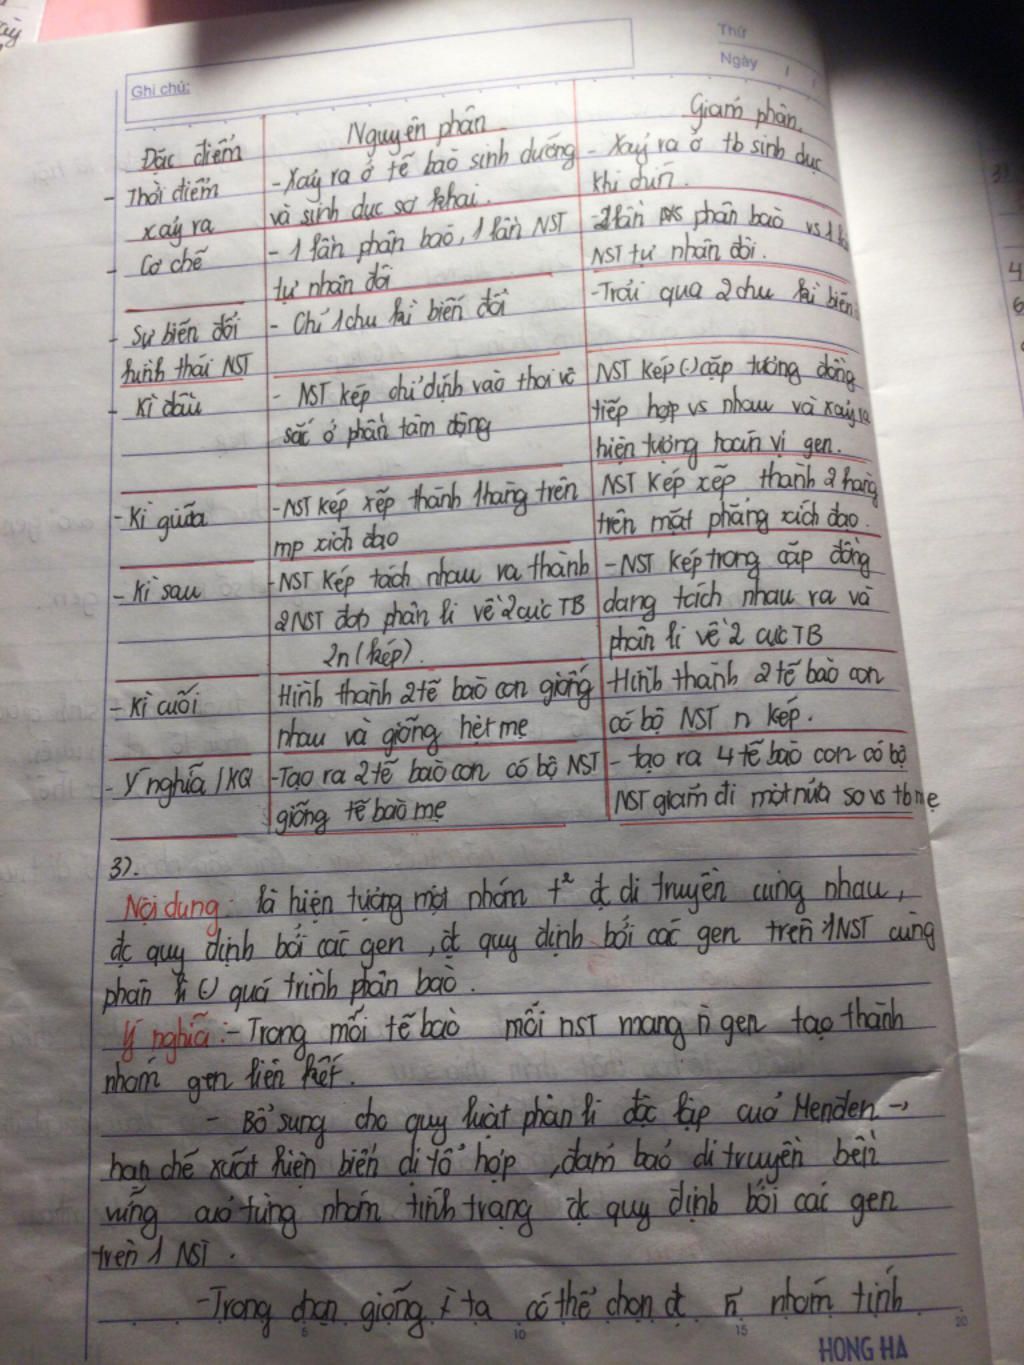 Thứ
Ngày / /
Ghi chú:
Đặc điểm
Nguyên phân
Giảm phân.
- Thời điểm xảy ra
- Xảy ra ở tế bào sinh dưỡng
và sinh dục sơ khai.
- Xảy ra ở tb sinh dục
khi chín.
- Cơ chế
- 1 lần phân bào, 1 lần NST
tự nhân đôi
- 2 lần phân bào vs 1
NST tự nhân đôi.
- Sự biến đổi
hình thái NST
- Chỉ 1 chu kì biến đổi
- Trải qua 2 chu kì biến
- Kì đầu
- NST kép chỉ đính vào thoi vô
sắc ở phần tâm động
NST kép (-) cặp tương đồng
tiếp hợp vs nhau và xảy ra
hiện tượng hoán vị gen.
- Kì giữa
- NST kép xếp thành 1 hàng trên
mp xích đạo
NST kép xếp thành 2 hàng
trên mặt phẳng xích đạo.
- Kì sau
- NST kép tách nhau ra thành
2 NST đơn phân li về 2 cực TB
2n (kép).
- NST kép trong cặp đồng
dạng tách nhau ra và
phân li về 2 cực TB
- Kì cuối
Hình thành 2 tế bào con giống
nhau và giống hệt mẹ
- Hình thành 2 tế bào con
có bộ NST n kép.
- Ý nghĩa / KQ
- Tạo ra 2 tế bào con có bộ NST
giống tế bào mẹ
- tạo ra 4 tế bào con có bộ
NST giảm đi một nửa so vs tb mẹ
3).
Nội dung: là hiện tượng một nhóm t² đc di truyền cùng nhau,
đc quy định bởi các gen, đc quy định bởi các gen trên 1 NST cùng
phân li (-) quá trình phân bào.
Ý nghĩa: - Trong mỗi tế bào mỗi nst mang n̄ gen tạo thành
nhóm gen liên kết.
- Bổ sung cho quy luật phân li độc lập của Menđen →
hạn chế xuất hiện biến dị tổ hợp, đảm bảo di truyền bền
vững của từng nhóm tính trạng đc quy định bởi các gen
trên 1 NST.
- Trong chọn giống ta có thể chọn đc n̄ nhóm tính
5 10 15 20
HONG HA